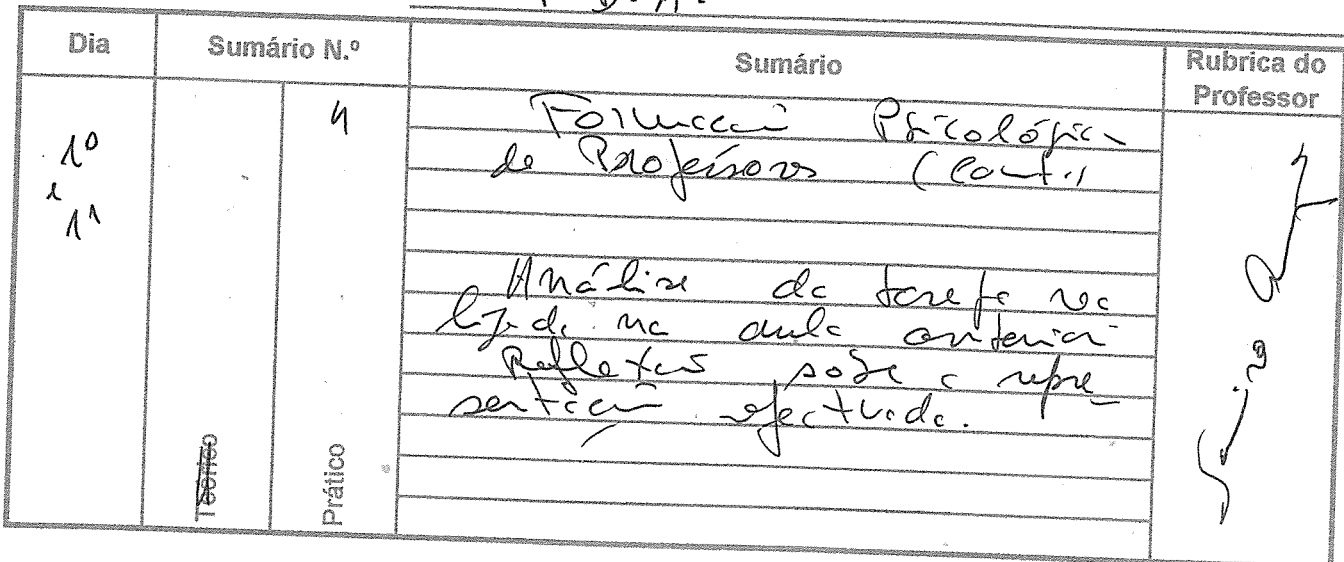 Dia Sumário N.º Sumário Rubrica do Professor
10
e
11
4
Formação Psicológica
de Professores (cont.)
Análise da tarefa rea
lizada na aula anterior
Reflexão sobre a repre_
sentação efectuada.
Teórico
Prático